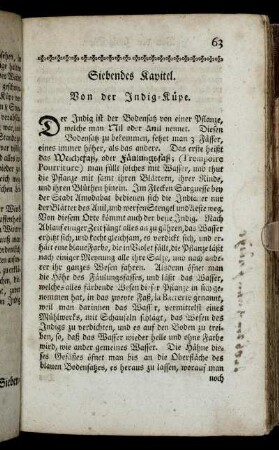 63
Siebendes Kapitel.
Von der Indig-Küpe.
Der Indig ist der Bodensatz von einer Pflanze,
welche man Nil oder Anil nennet. Diesen
Bodensatz zu bekommen, setzet man 3 Fässer,
eines immer höher, als das andere. Das erste heißt
das Weichefaß, oder Fäulungsfaß; (Trompoire
Pourriture) man füllt solches mit Wasser, und thut
die Pflanze mit samt ihren Blättern, ihrer Rinde,
und ihren Blüthen hinein. Im Flecken Sarquesse bey
der Stadt Amadabat bedienen sich die Indianer nur
der Blätter des Anil, und werfen Stengel und Aeste weg.
Von diesem Orte kömmt auch der beste Indig. Nach
Ablauf einiger Zeit fängt alles an zu gähren, das Wasser
erhitzt sich, und kocht gleichsam, es verdickt sich, und er-
hält eine blaue Farbe, die ins Violet fällt, die Pflanze läßt
nach einiger Meynung alle ihre Salze, und nach ande-
rer ihr ganzes Wesen fahren. Alsdenn öfnet man
die Höhe des Fäulungsfasses, und läßt das Wasser,
welches alles färbende Wesen dieser Pflanze in sich ge-
nommen hat, in das zweyte Faß, la Batterie genannt,
weil man darinnen das Wasser, vermittelst eines
Mühlwerks, mit Schaufeln schlägt, das Wesen des
Indigs zu verdichten, und es auf den Boden zu trei-
ben, so, daß das Wasser wieder helle und ohne Farbe
wird, wie ander gemeines Wasser. Die Hähne die-
ses Gefäßes öfnet man bis an die Oberfläche des
blauen Bodensatzes, es heraus zu lassen, worauf man
noch